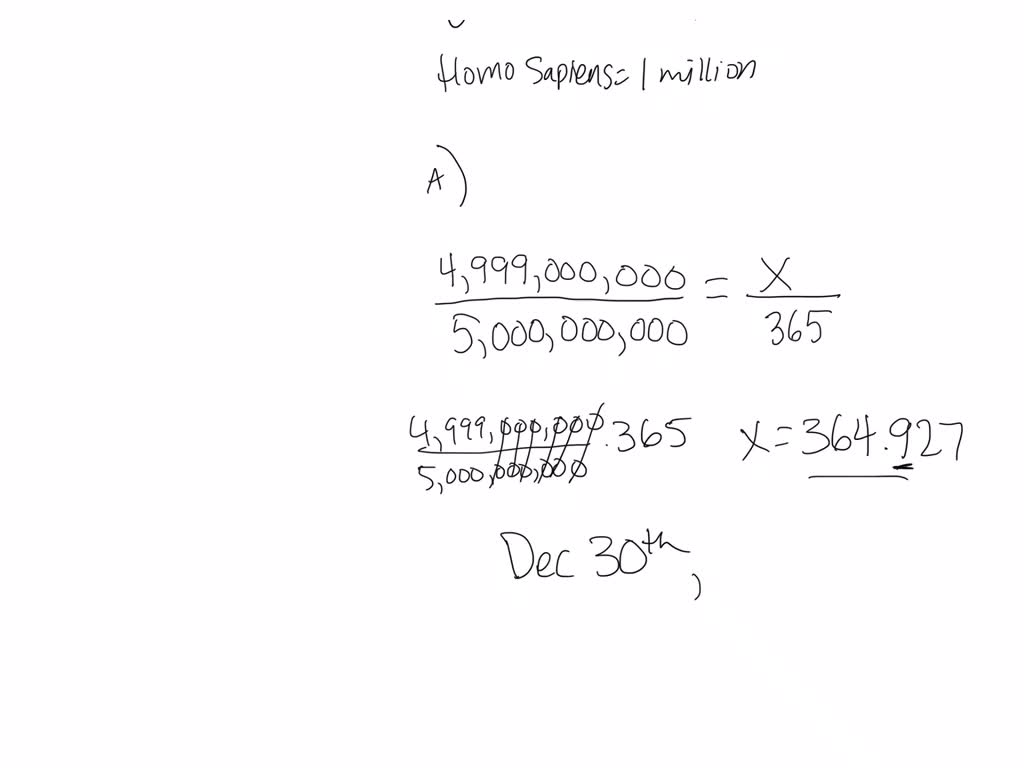 Homo Sapiens = 1 million
A)
4,999,000,000 / 5,000,000,000 = X / 365
4,999,000,000 / 5,000,000,000 · 365 X = 364.927
Dec 30th,